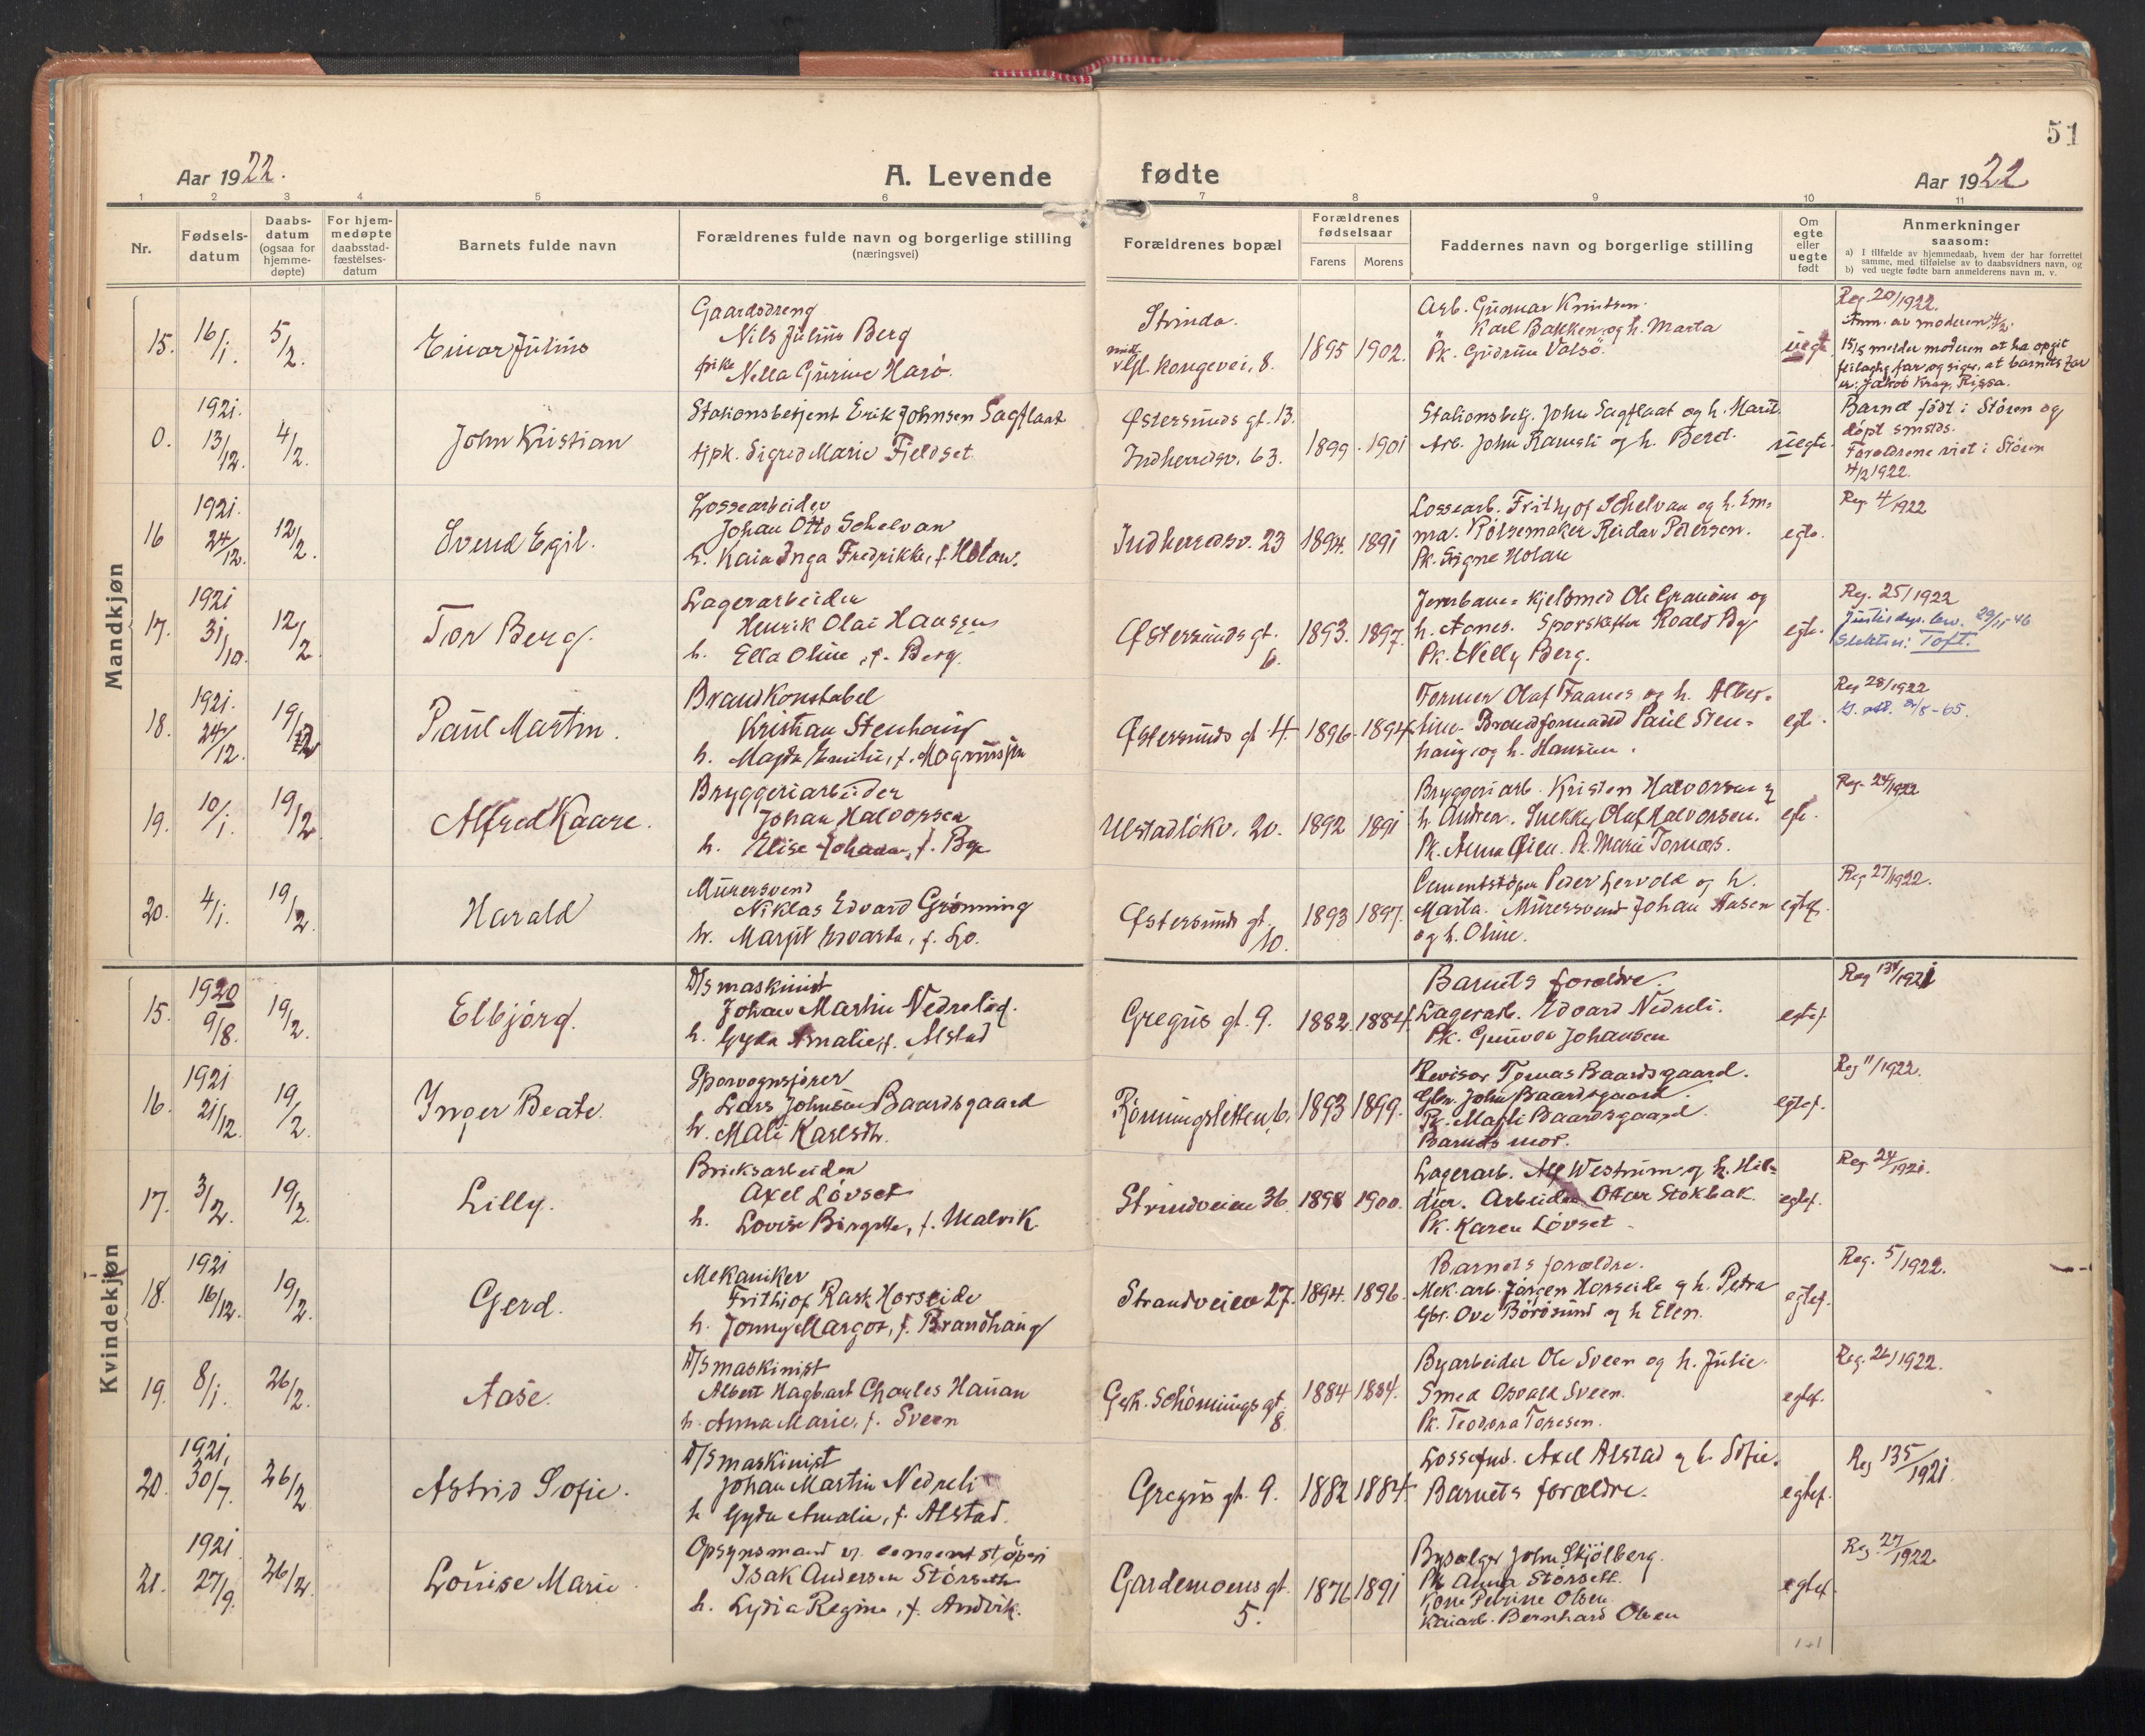 51
Aar 1922.
A. Levende fødte
Aar 1922
1 2 3 4 5 6 7 8 9 10 11
Nr.
Fødsels-
datum
Daabs-
datum
(ogsaa for
hjemme-
døpte)
For hjem-
medøpte
daabsstad-
fæstelses-
datum
Barnets fulde navn
Forældrenes fulde navn og borgerlige stilling
(næringsvei)
Forældrenes bopæl
Forældrenes
fødselsaar
Farens Morens
Faddernes navn og borgerlige stilling
Om
egte
eller
uegte
født
Anmerkninger
saasom:
a) I tilfælde av hjemmedaab, hvem der har forrettet
samme, med tilføielse av to daabsvidners navn, og
b) ved uegte fødte barn anmelderens navn m. v.
Mandkjøn
15. 16/1. 5/2.
Einar Julius
Gaardsdreng
Nils Julius Berg
Nella Gurine Harö.
Strinda.
kongevei, 8.
1895 1902.
Arb. Gunnar Knutsen.
Karl Bakken og h. Marta
Pk. Gudrun Valsö.
uegte
Reg. 20/1922.
Anm. av moderen 4/2.
15/5 melder moderen at ha opgit
feilagtig far og siger, at barnets far
er: Jakob Krag, Rissa.
0. 1921. 13/12. 4/2.
John Kristian
Stationsbetjent Erik Johnsen Sagflaat
tjpk. Sigrid Marie Fjeldset
Østersunds gt. 13.
Indherredsv. 63.
1899. 1901
Stationsbetj. John Sagflaat og h. Marit.
Arb. John Ramsli og h. Beret.
uegte.
Barnet født i Stören og
döpt smstds.
Forældrene viet i Stören
4/2 1922.
16 1921. 24/12. 12/2.
Svend Egil.
Lossearbeider
Johan Otto Schelvan
h. Kaia Inga Fredrikke, f. Holan.
Indherredsv. 23
1894. 1891
Lossearb. Frithjof Schelvan og h. Em-
ma. Pölsemaker Reidar Petersen.
Pk. Signe Holan
egte.
Reg 4/1922
17. 1921 31/10. 12/2
Tor Berg.
Lagerarbeider
Henrik Olai Hansen
h. Ella Oline, f. Berg.
Østersunds gt.
6.
1893. 1897.
Jernbane-kjelsmed Ole Granöien og
h. Agnes. Sporskifter Roald Berg
Pk. Nelly Berg.
egte.
Reg. 25/1922
Justisdep. bev. 29/11 46
slektsn: Toft.
18. 1921. 24/12. 19/2
Paul Martin.
Brandkonstabel
Kristian Stenhaug
h. Magda Emilie, f. Magnussen
Østersunds gt 4.
1896. 1894
Former Olaf Faanes og h. Alber-
tine. Brandformand Paul Sten-
haug og h. Hansine.
egte.
Reg 28/1922
19. 10/1. 19/2.
Alfred Kaare.
Bryggeriarbeider
Johan Halvorsen
h. Elise Johanna, f. Bye
Ulstadlökv. 20.
1892 1891
Bryggeriarb. Kristen Halvorsen og
h. Andrea. Snekker Olaf Halvorsen.
Pk. Anna Öien. Pk. Marie Tornæs.
egte.
Reg. 24/1922
20. 4/1. 19/2
Harald
Murersvend
Niklas Edvard Grönning
h. Margit Hovarda, f. Lo.
Østersunds gt.
10.
1893 1897.
Cementstöper Peder Hervold og h.
Marta. Murersvend Johan Aasen
og h. Oline.
egtef.
Reg 27/1922.
Kvindekjøn
15. 1920 9/8. 19/2.
Elbjörg.
D/S maskinist
Johan Martin Nedreli
h. Gyda Amalie, f. Alstad
Gregus gt. 9.
1882. 1884.
Barnets forældre.
Lagerarb. Edvard Nedreli.
Pk. Gunvor Johansen
egtef.
Reg 134/1921
16. 1921 21/12. 19/2.
Inger Beate.
Sporvognsförer
Lars Johnsen Baardsgaard
h. Mali Karlsdtr.
Rönningsletten, 6.
1893 1899.
Revisor Tomas Baardsgaard.
Gbr. John Baardsgaard.
Pk. Magli Baardsgaard.
Barnets mor.
egtef.
Reg 11/1922.
17. 3/2. 19/2.
Lilly.
Bruksarbeider
Axel Lövset
h. Lovise Birgitte, f. Malvik.
Strindveien 36
1898 1900.
Lagerarb. Alf Westrum og h. Hil-
dur. Arbeider Ottar Stokbak.
Pk. Karen Lövset.
egtef.
Reg 24/1921.
18. 1921 16/12. 19/2.
Gerd.
Mekaniker
Frithjof Rask Horseide
h. Jonny Margot, f. Brandhaug
Strandveien 27.
1894. 1896.
Barnets forældre.
Mek. arb. Jörgen Horseide og h. Petra
Gbr. Ove Börösund og h Elen.
egtef.
Reg. 5/1922.
19. 8/1. 26/2.
Aase.
D/S maskinist
Albert Hagbart Charles Hanan
h. Anna Marie, f. Sveen
Gerh. Schönings gt.
8
1884 1884.
Byarbeider Ole Sveen og h. Julie.
Smed Osvald Sveen.
Pk. Teodora Toresen.
egtef.
Reg. 26/1922.
20. 1921, 30/7. 26/2
Astrid Sofie.
D/S maskinist
Johan Martin Nedreli
h Gyda Amalie, f. Alstad.
Gregus gt. 9.
1882 1884.
Losseform. Axel Alstad og h. Sofie.
Barnets forældre.
egtef.
Reg 135/1921.
21. 1921 27/9. 26/2.
Louise Marie.
Opsynsmand v. cementstöperi
Isak Andersen Störseth
h. Lydia Regine, f. Andvik.
Gardemoens gt.
5.
1876 1891
Bysælger John Skjölberg.
Pk Anna Störsett.
Kone Petrine Olsen
Kaiarb. Bernhard Olsen
egtef.
Reg. 27/1922.
1+1